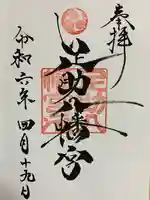 奉拝
助八幡宮
令和六年 四月十九日